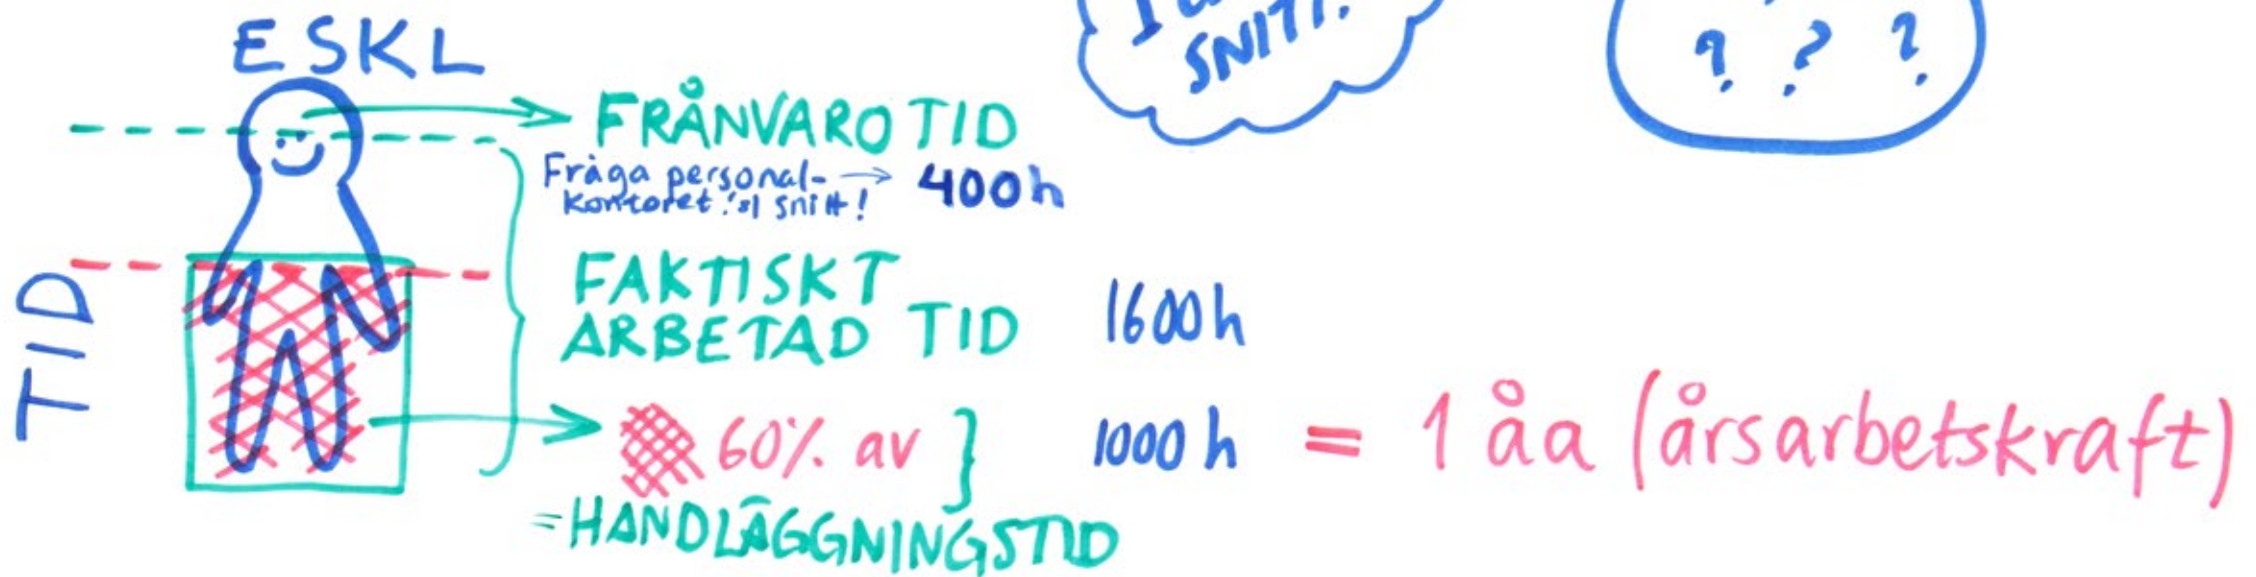 ESKL
SNITT!
? ? ?
FRÅNVARO TID
Fråga personal- → 400h
kontoret! snitt!
TID
FAKTISKT
ARBETAD TID 1600h
60% av } 1000h = 1 åa (årsarbetskraft)
=HANDLÄGGNINGSTID